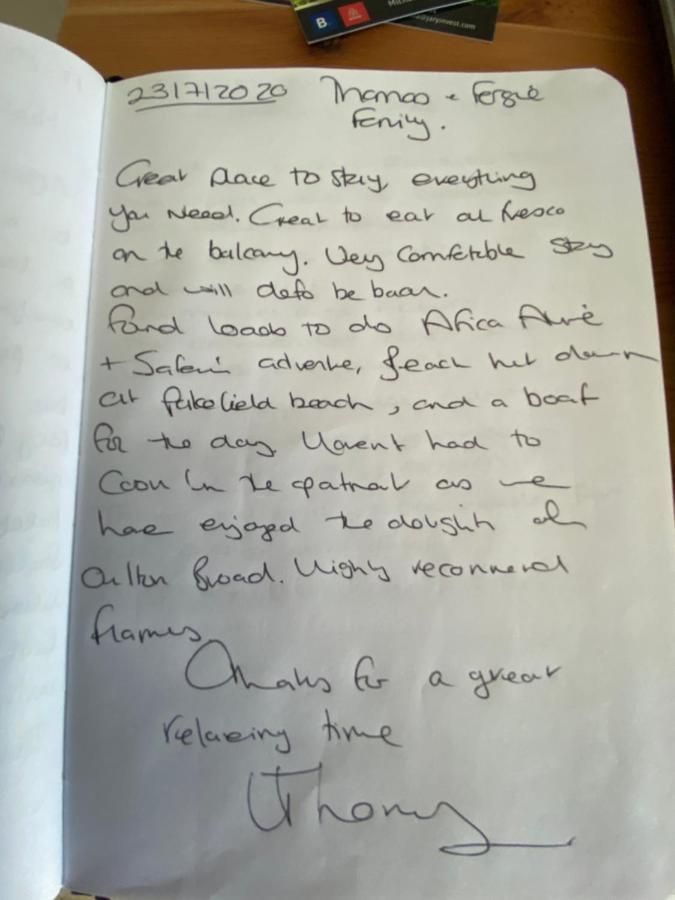 B.
@jarysinvest.com
23/7/2020 Thomas + Fergie
Family.
Great place to stay, everything
you need. Great to eat al fresco
on the balcony. Very comfortable stay
and will defo be back.
Found loads to do Africa Alive
+ Safari adventure, beach hut down
at Pakefield beach, and a boat
for the day. Havent had to
Cook in the apartment as we
have enjoyed the delights of
Oulton Broad. Highly recommend
flames.
Thanks for a great
relaxing time